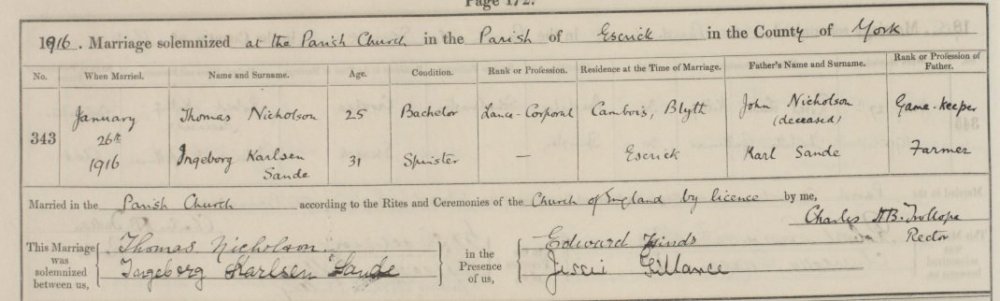 Page 172.
1916. Marriage solemnized at the Parish Church in the Parish of Escrick in the County of York
No. When Married. Name and Surname. Age. Condition. Rank or Profession. Residence at the Time of Marriage. Father's Name and Surname. Rank or Profession of Father.
343 January 26th 1916 Thomas Nicholson 25 Bachelor Lance-Corporal Cambois, Blyth John Nicholson (deceased) Game-keeper
Ingeborg Karlsen Sande 31 Spinster — Escrick Karl Sande Farmer
Married in the Parish Church according to the Rites and Ceremonies of the Church of England by licence by me,
Charles W.B. Trollope
Rector
This Marriage was solemnized between us, Thomas Nicholson in the Presence of us, Edward Hinds
Ingeborg Karlsen Sande Jessie Gillance